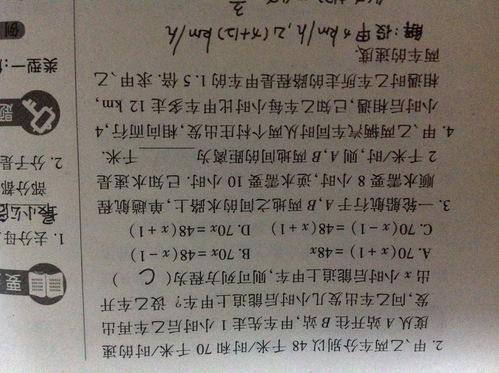 2. 甲、乙两车分别以 48 千米/时和 70 千米/时的速
度从 A 站开往 B 站,甲车先走 1 小时后乙车再出
发,问乙车出发几小时后能追上甲车?设乙车开
出 x 小时后能追上甲车,则可列方程为( C )
A. 70(x-1)=48x B. 70x=48(x-1)
C. 70(x-1)=48(x+1) D. 70x=48(x+1)
3. 一轮船航行于 A,B 两地之间的水路上,单趟航程
顺水需要 8 小时,逆水需要 10 小时.已知水速是
2 千米/时,则 A,B 两地间的距离为 千米.
4. 甲、乙两辆汽车同时从两个村庄出发,相向而行,4
小时后相遇,已知乙车每小时比甲车多走 12 km,
相遇时乙车所走的路程是甲车的 1.5 倍.求甲、乙
两车的速度.
解:设甲x km/h,乙(x+12)km/h
要
1. 去分母
最小公
部分都
2. 分子是
题
类型一:
例